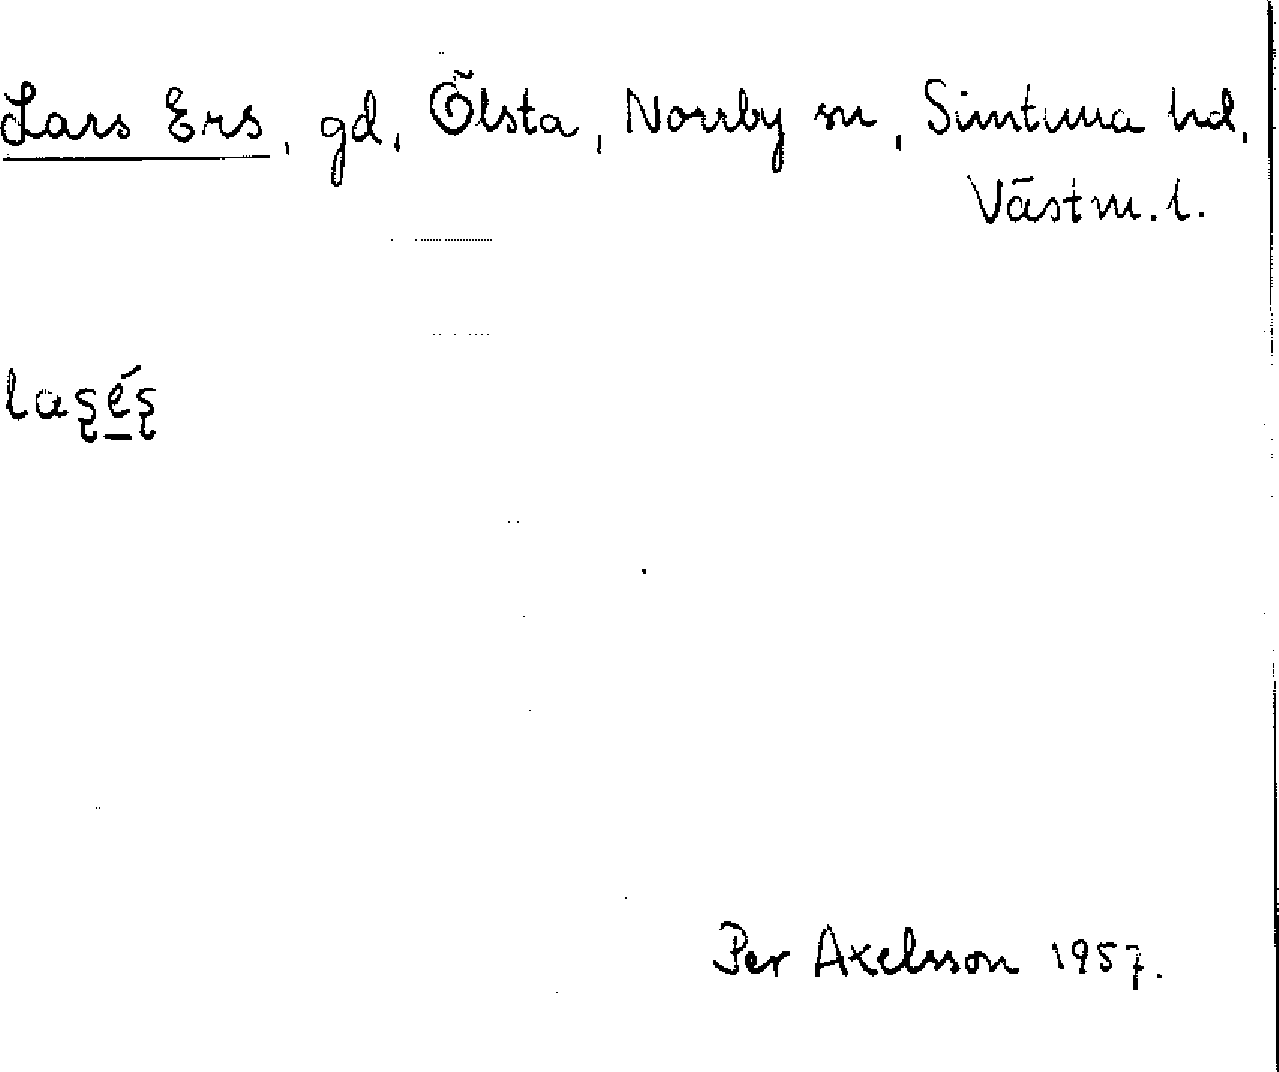 Lars Ers, gd, Ölsta, Norrby sn, Simtuna hd,
Västm. l.
laʂéʂ
Per Axelsson 1957.